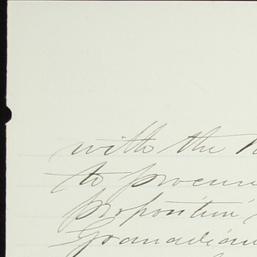 with the
to procure
proposition
Granadian